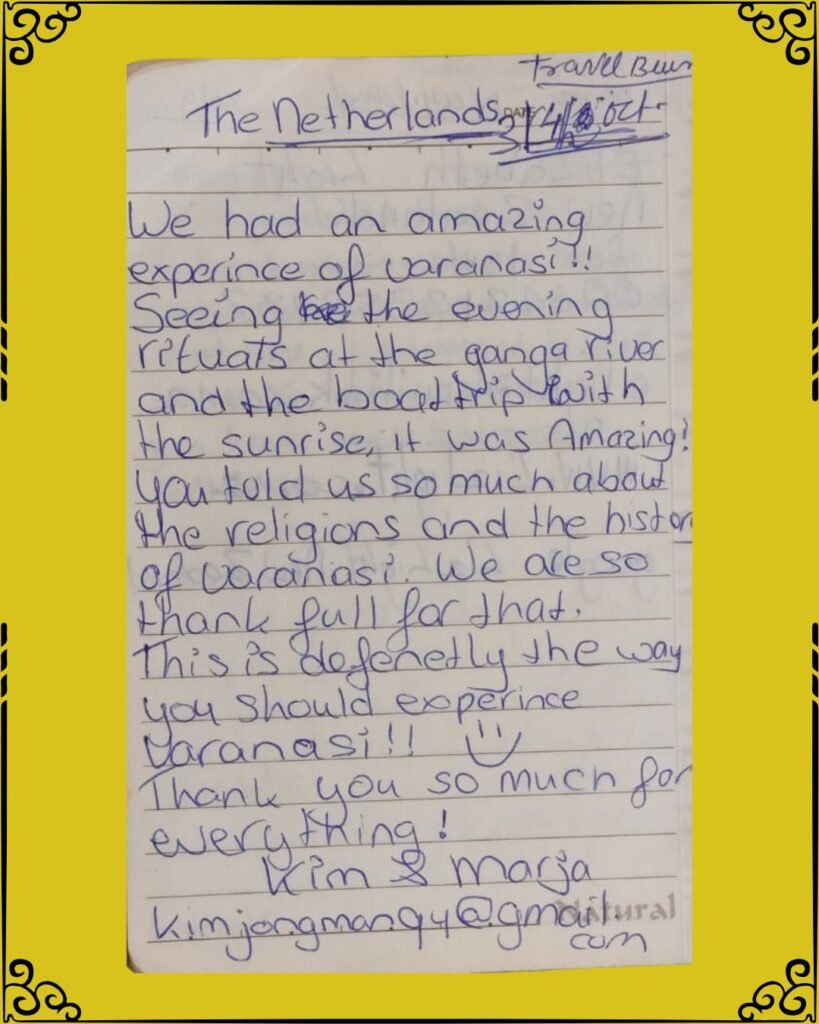 Travel
The Netherlands
DATE
Oct.
We had an amazing
experince of varanasi!!
Seeing the evening
rituals at the ganga river
and the boattrip with
the sunrise, it was Amazing!
you told us so much about
the religions and the histor
of varanasi. We are so
thank full for that.
This is defenetly the way
you should experince
varanasi!!
Thank you so much for
everything!
Kim & Marja
kimjongman94@gmail.
com
Natural